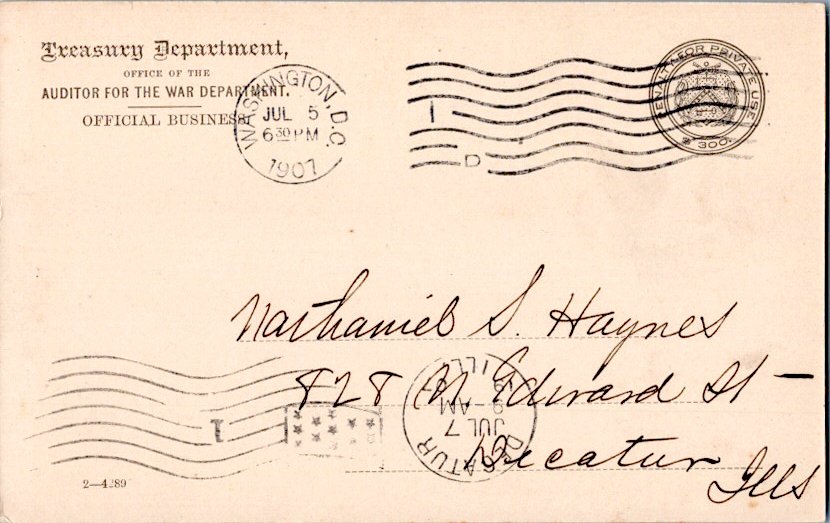 Treasury Department,
OFFICE OF THE
AUDITOR FOR THE WAR DEPARTMENT.
OFFICIAL BUSINESS.
WASHINGTON, D.C.
JUL 5
6 30 PM
1907
I
D
PENALTY FOR PRIVATE USE
$ 300.
Nathaniel S. Haynes
828 N Edward St —
Decatur
Ills
DECATUR
JUL 7
AM
ILL.
I